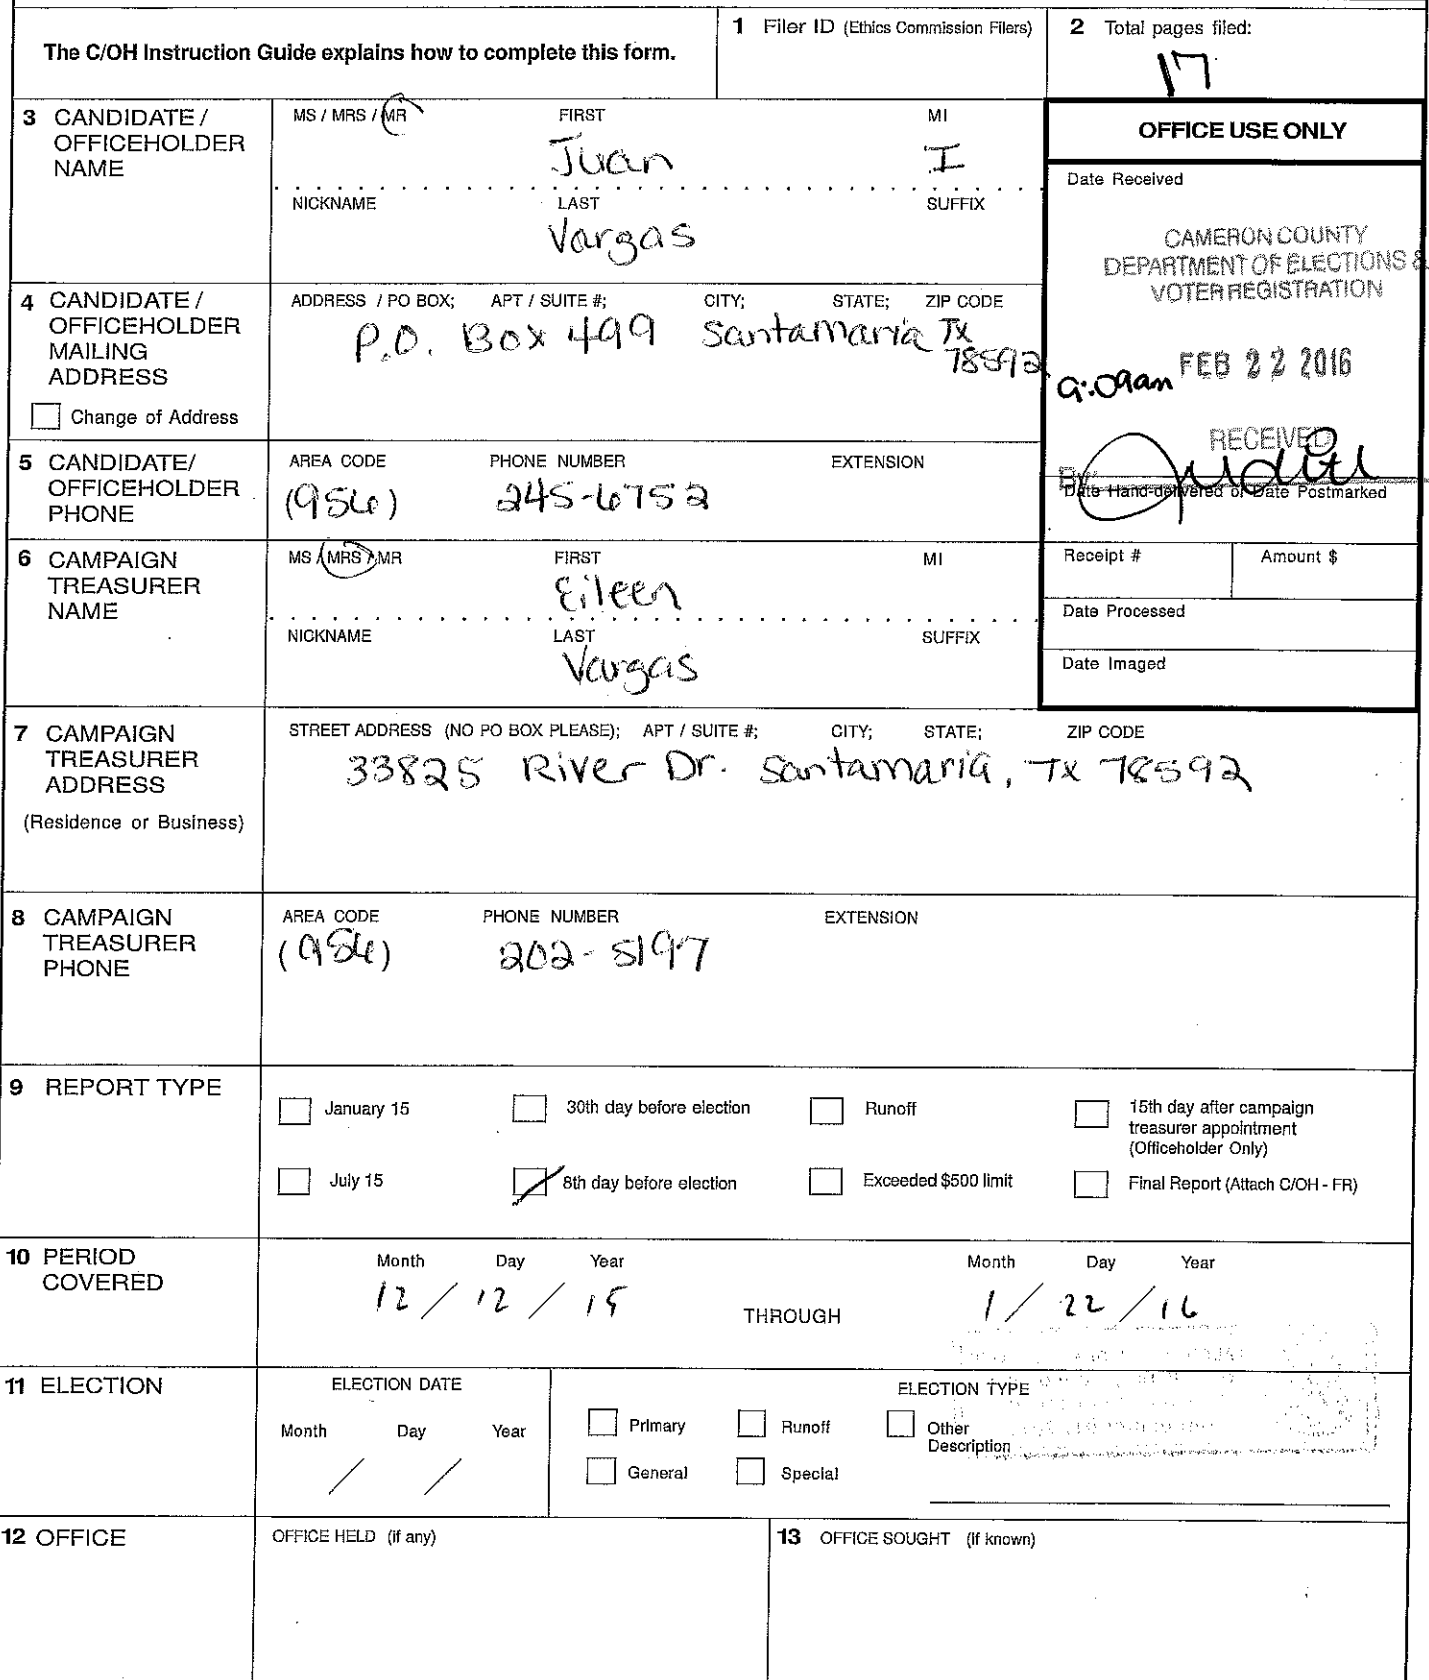 The C/OH Instruction Guide explains how to complete this form.
1 Filer ID (Ethics Commission Filers)
2 Total pages filed:
17
3 CANDIDATE / OFFICEHOLDER NAME
MS / MRS / MR FIRST MI
Juan I
NICKNAME LAST SUFFIX
Vargas
OFFICE USE ONLY
Date Received
CAMERON COUNTY
DEPARTMENT OF ELECTIONS &
VOTER REGISTRATION
9:09am FEB 22 2016
RECEIVED
By Judith
Date Hand-delivered or Date Postmarked
Receipt # Amount $
Date Processed
Date Imaged
4 CANDIDATE / OFFICEHOLDER MAILING ADDRESS
Change of Address
ADDRESS / PO BOX; APT / SUITE #; CITY; STATE; ZIP CODE
P.O. Box 499 Santamaria Tx
78592
5 CANDIDATE/ OFFICEHOLDER PHONE
AREA CODE PHONE NUMBER EXTENSION
(956) 245-6752
6 CAMPAIGN TREASURER NAME
MS / MRS / MR FIRST MI
Eileen
NICKNAME LAST SUFFIX
Vargas
7 CAMPAIGN TREASURER ADDRESS
(Residence or Business)
STREET ADDRESS (NO PO BOX PLEASE); APT / SUITE #; CITY; STATE; ZIP CODE
33825 River Dr. Santamaria, Tx 78592
8 CAMPAIGN TREASURER PHONE
AREA CODE PHONE NUMBER EXTENSION
(956) 202-5197
9 REPORT TYPE
January 15 30th day before election Runoff 15th day after campaign
treasurer appointment
(Officeholder Only)
July 15 8th day before election Exceeded $500 limit Final Report (Attach C/OH - FR)
10 PERIOD COVERED
Month Day Year Month Day Year
12 / 12 / 15 THROUGH 1 / 22 / 16
11 ELECTION
ELECTION DATE
Month Day Year
/ /
ELECTION TYPE
Primary Runoff Other
Description
General Special
12 OFFICE
OFFICE HELD (if any)
13 OFFICE SOUGHT (if known)